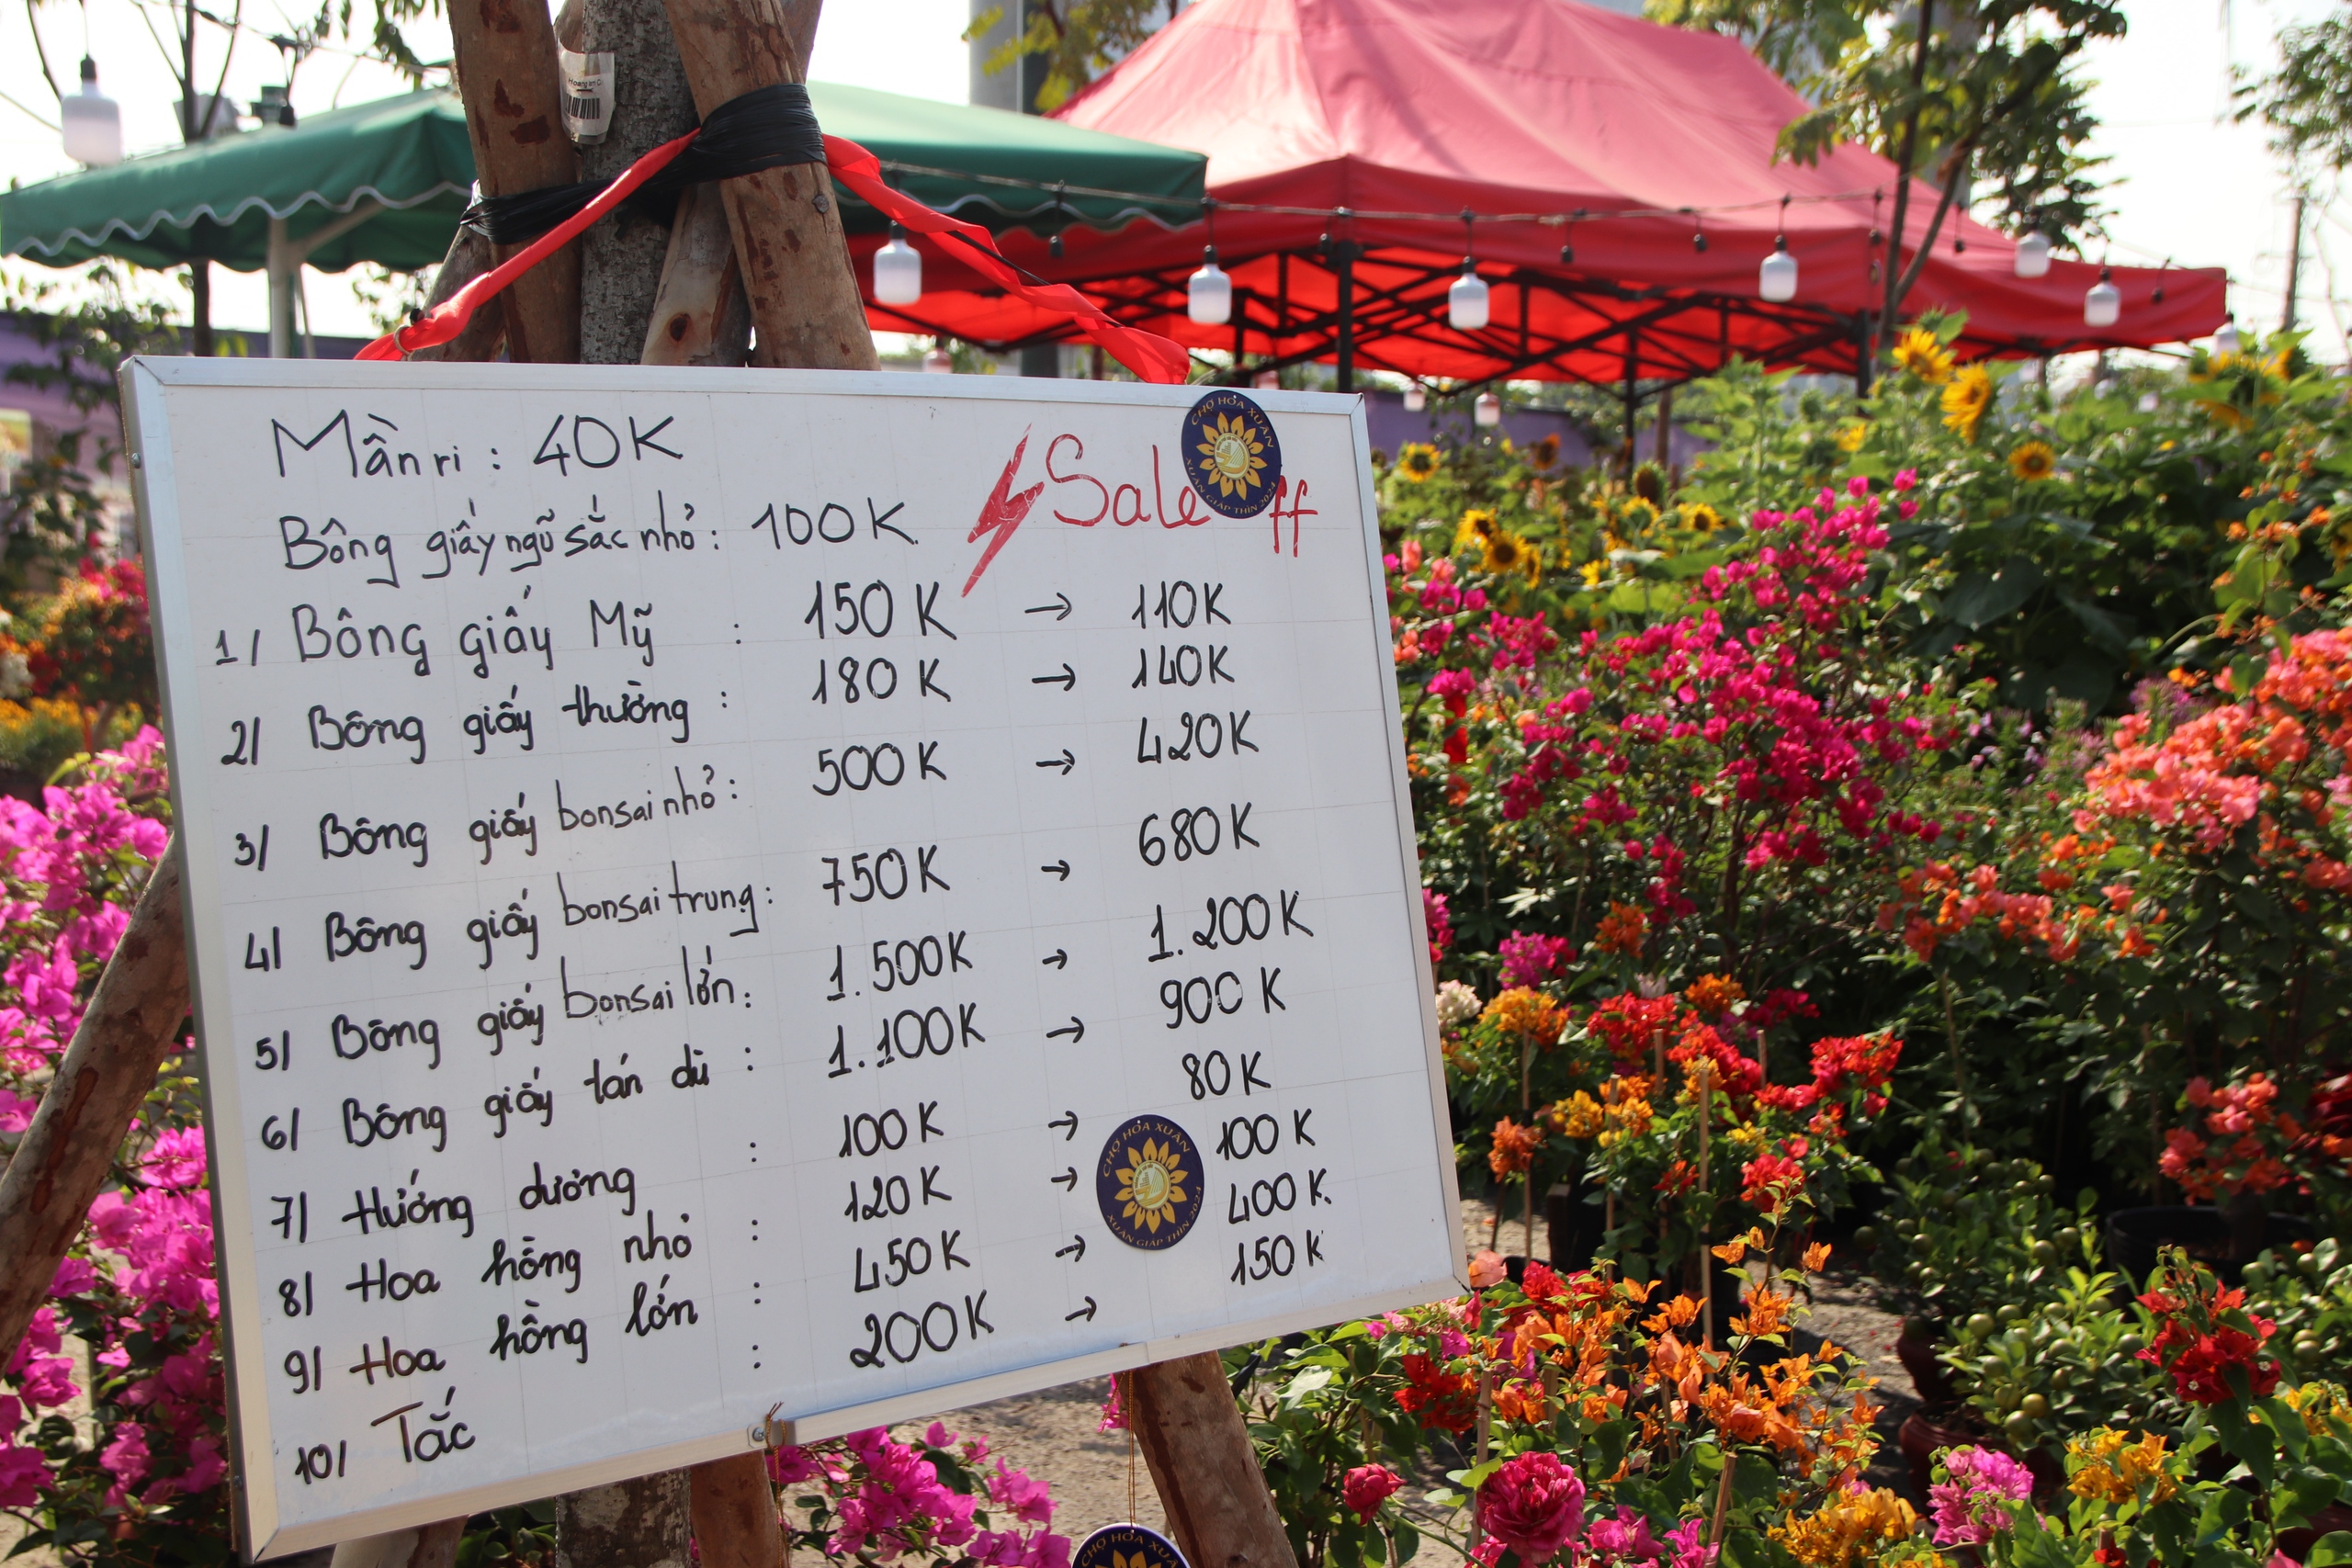 Mần ri : 40K
Bông giấy ngũ sắc nhỏ : 100K.
Sale ff
1/ Bông giấy Mỹ : 150K → 110K
2/ Bông giấy thường : 180K → 140K
3/ Bông giấy bonsai nhỏ : 500K → 420K
4/ Bông giấy bonsai trung : 750K → 680K
5/ Bông giấy bonsai lớn : 1.500K → 1.200K
6/ Bông giấy tán dù : 1.100K → 900K
7/ Hướng dương : 100K → 80K
8/ Hoa hồng nhỏ : 120K → 100K
9/ Hoa hồng lớn : 450K → 400K.
10/ Tắc : 200K → 150K
CHỢ HOA XUÂN
XUÂN GIÁP THÌN 2024
CHỢ HOA XUÂN
XUÂN GIÁP THÌN 2024
CHỢ HOA XUÂN